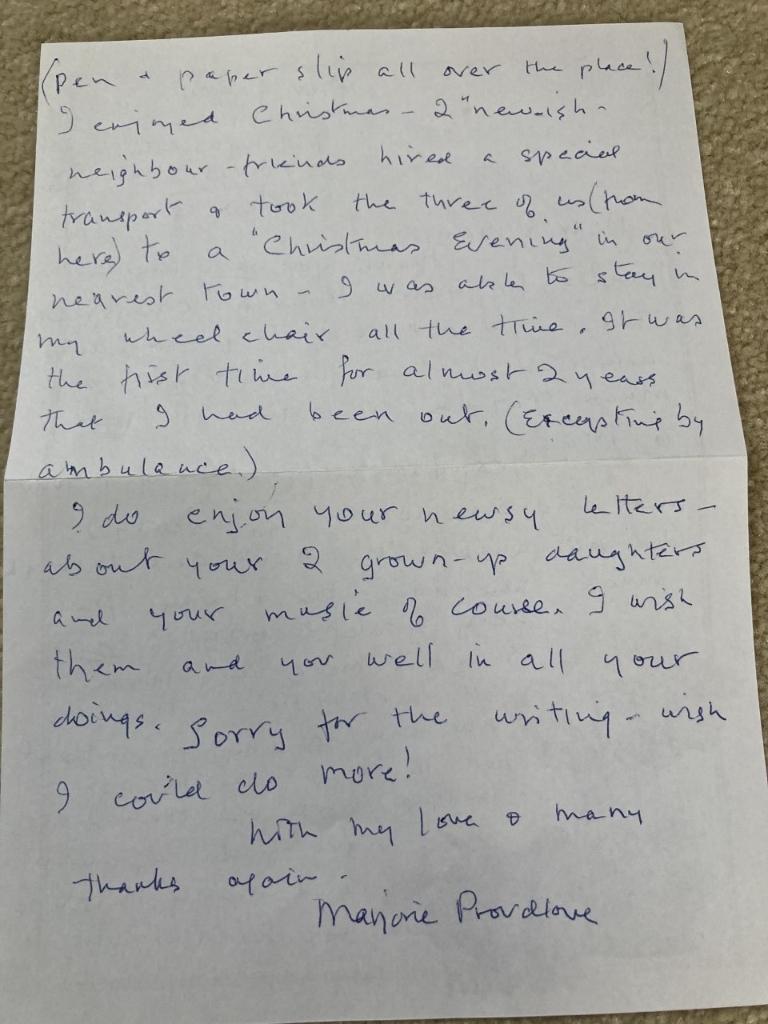 (Pen & paper slip all over the place!)
I enjoyed Christmas - 2 "new-ish -
neighbour - friends hired a special
transport & took the three of us (from
here) to a "Christmas Evening" in our
nearest town - I was able to stay in
my wheel chair all the time. It was
the first time for almost 2 years
that I had been out. (Excepting by
ambulance.)
I do enjoy your newsy letters -
about your 2 grown-up daughters
and your music of course. I wish
them and you well in all your
doings. Sorry for the writing - wish
I could do more!
With my love & many
thanks again.
Marjorie Proudlove